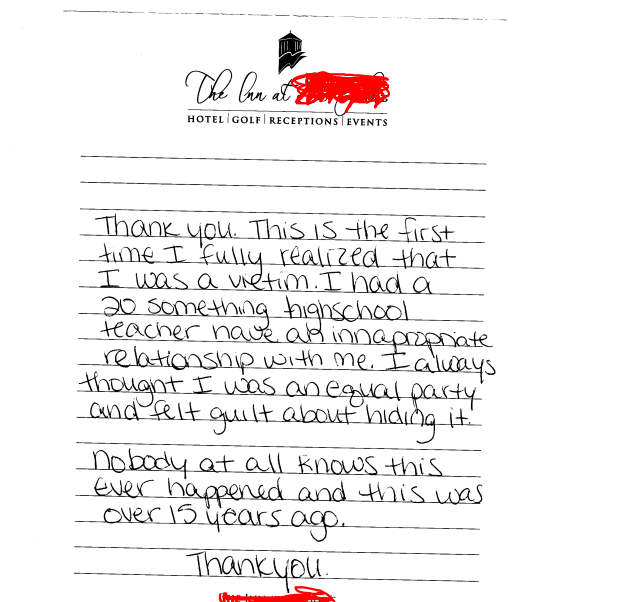 The Inn at
HOTEL | GOLF | RECEPTIONS | EVENTS
Thank you. This is the first
time I fully realized that
I was a victim. I had a
20 something highschool
teacher have an innapropriate
relationship with me. I always
thought I was an equal party
and felt guilt about hiding it.
Nobody at all knows this
ever happened and this was
over 15 years ago.
Thankyou.